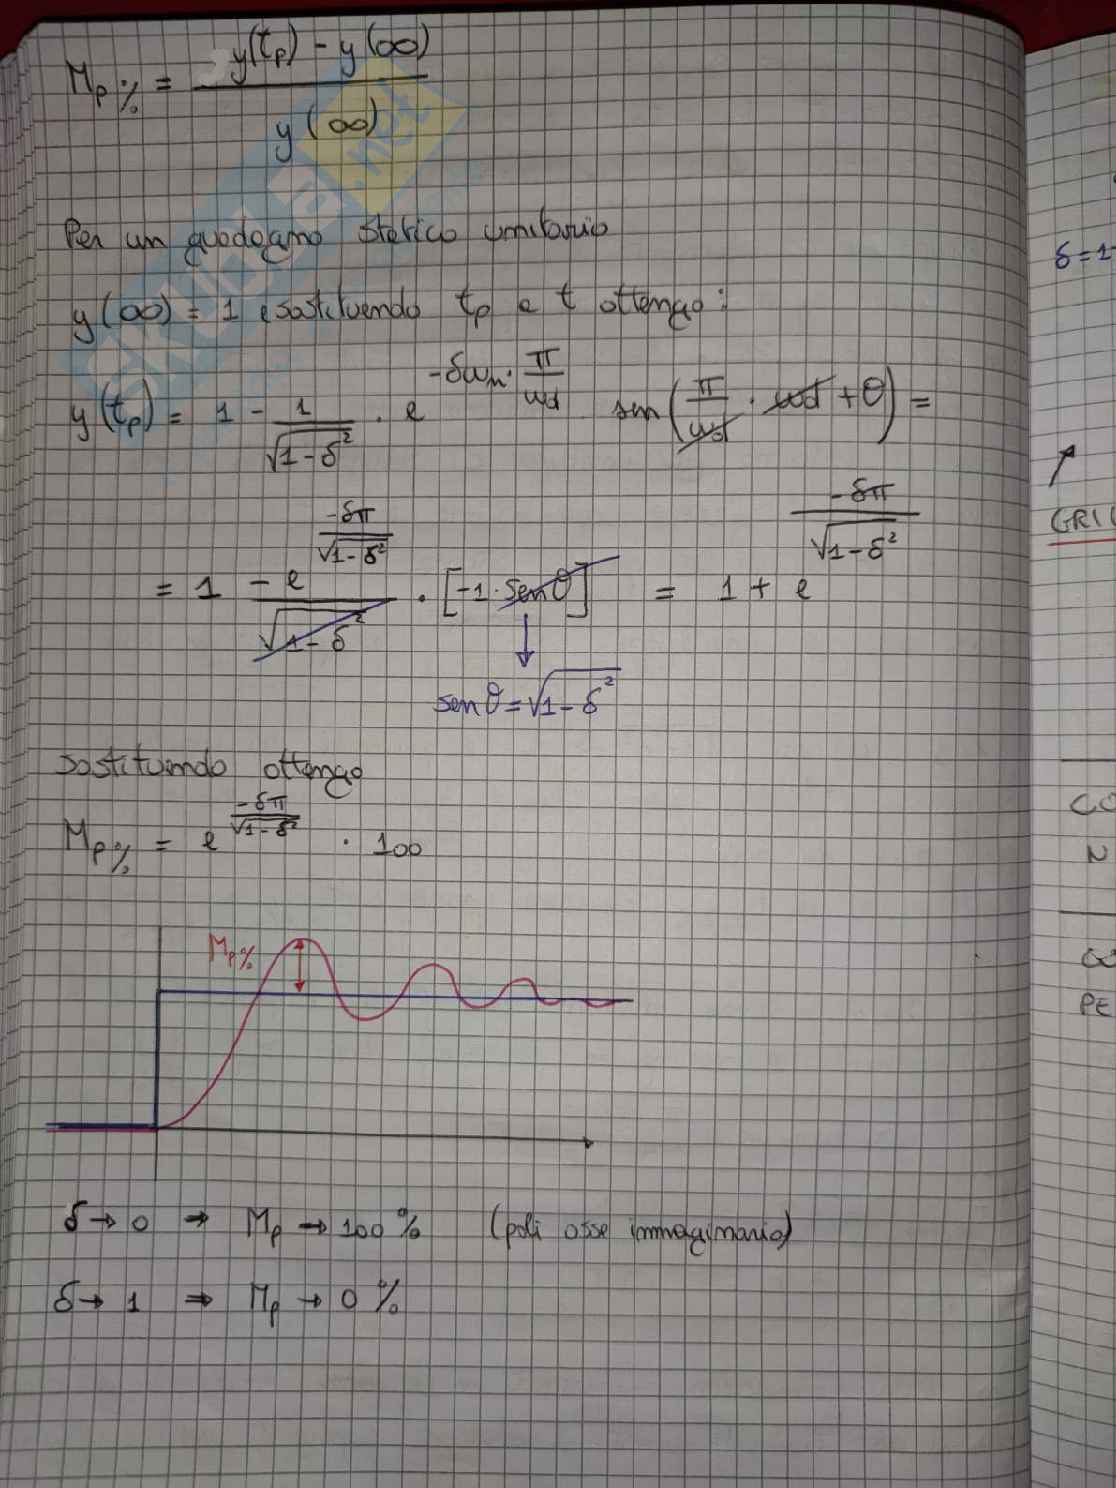 Mp% = y(tp) - y(∞) / y(∞)
SKUOLA.net
Per un guadagno statico unitario
y(∞) = 1 e sostituendo tp e t ottengo:
y(tp) = 1 - 1/√(1-δ²) · e^(-δωn · π/ωd) sen(π/ωd · ωd + θ) =
= 1 - e^(-δπ/√(1-δ²)) / √(1-δ²) · [-1 · senθ] = 1 + e^(-δπ/√(1-δ²))
↓
senθ = √(1-δ²)
sostituendo ottengo
Mp% = e^(-δπ/√(1-δ²)) · 100
Mp%
δ → 0 ⇒ Mp → 100% (poli asse immaginario)
δ → 1 ⇒ Mp → 0%
δ = 1
CO
N
PE